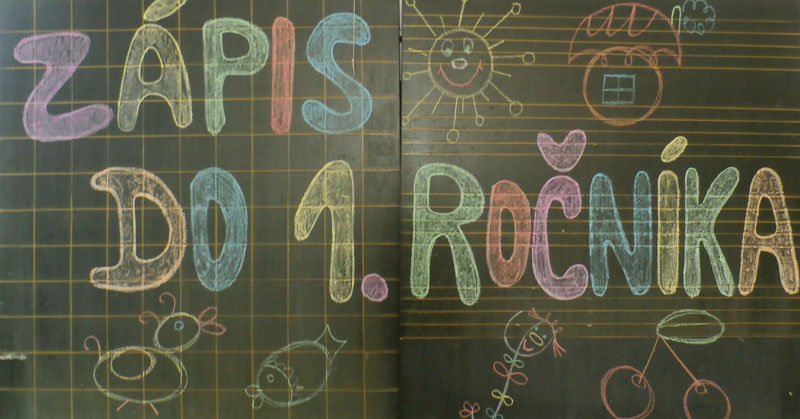 ZÁPIS
DO 1. ROČNÍKA